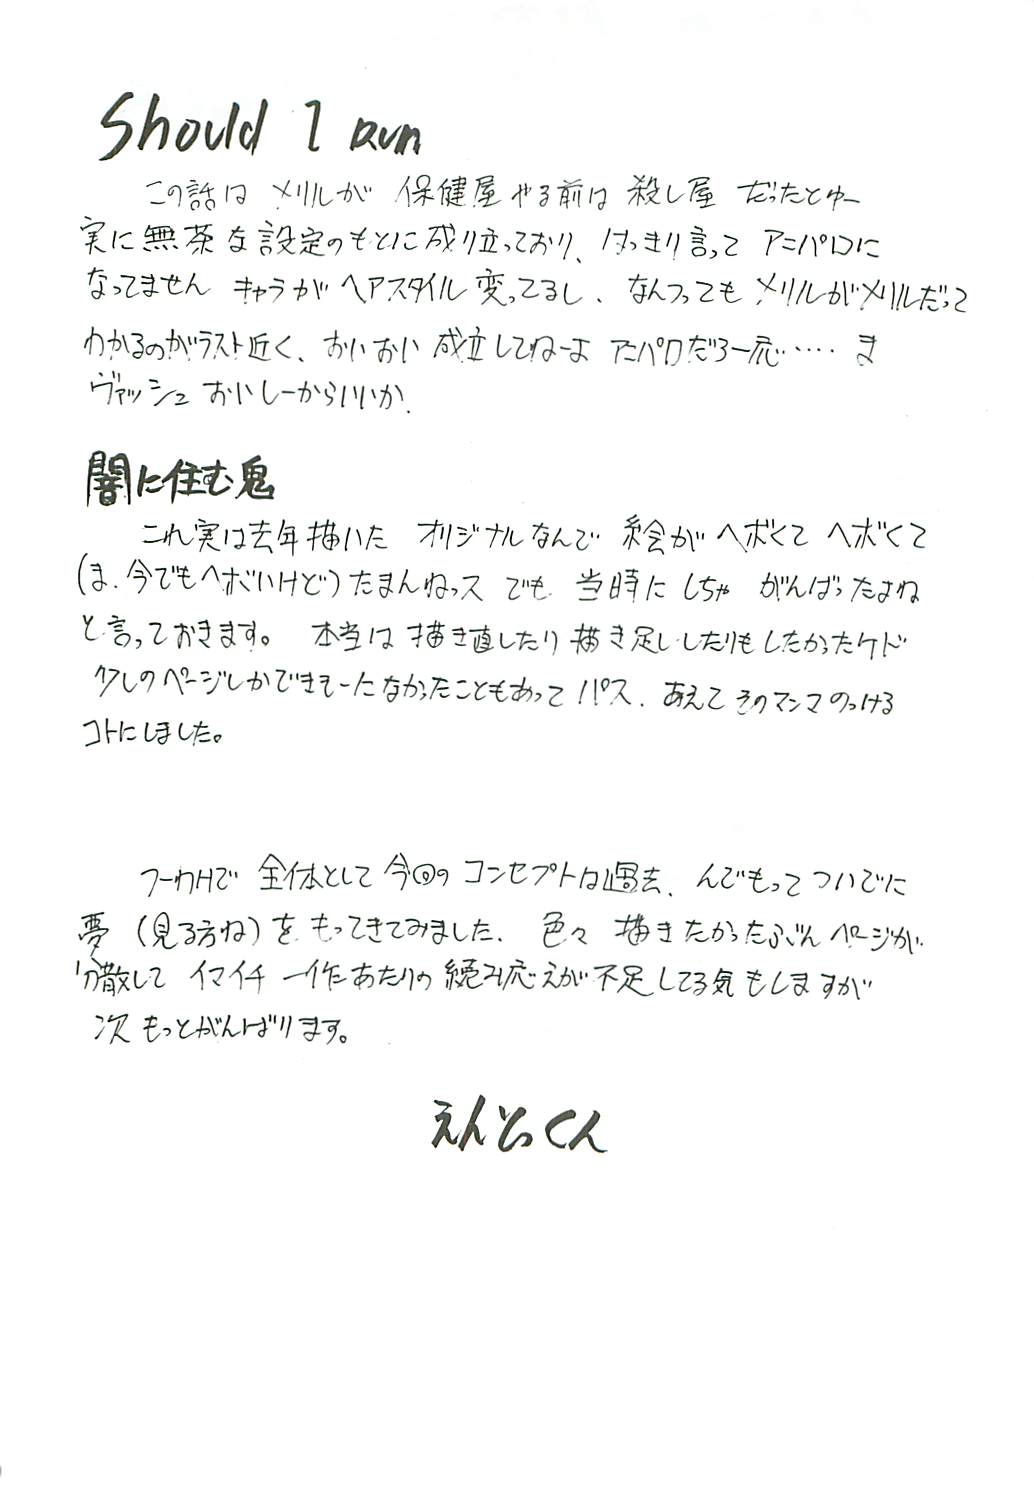 Should I Run
この話は メリルが 保健屋 やる前は 殺し屋 だったとゆー
実に無茶な設定のもとに成り立っており、はっきり言って アニパロに
なってません キャラが ヘアスタイル 変ってるし、なんつっても メリルがメリルだって
わかるのがラスト近く、おいおい 成立してねーよ アニパロだろ一応‥‥ ま
ヴァッシュ おいしーからいいか.
闇に住む鬼
これ実は去年描いた オリジナルなんで 絵がヘボくて ヘボくて
(ま、今でもヘボいけど)たまんねっス でも 当時に しちゃ がんばったよね
と言っておきます。 本当は 描き直したり 描き足し したりもしたかったケド
少しのページしかできそーになかったこともあって パス、あえて そのマンマ のっける
コトにしました。
つーわけで 全体として 今回の コンセプトは過去、んでもって ついでに
夢 (見る方ね)を もってきてみました、色々 描きたかったぶん ページが
分散して イマイチ 一作あたりの 読み応えが不足してる気もしますが
次 もっとがんばります。
えんどくん